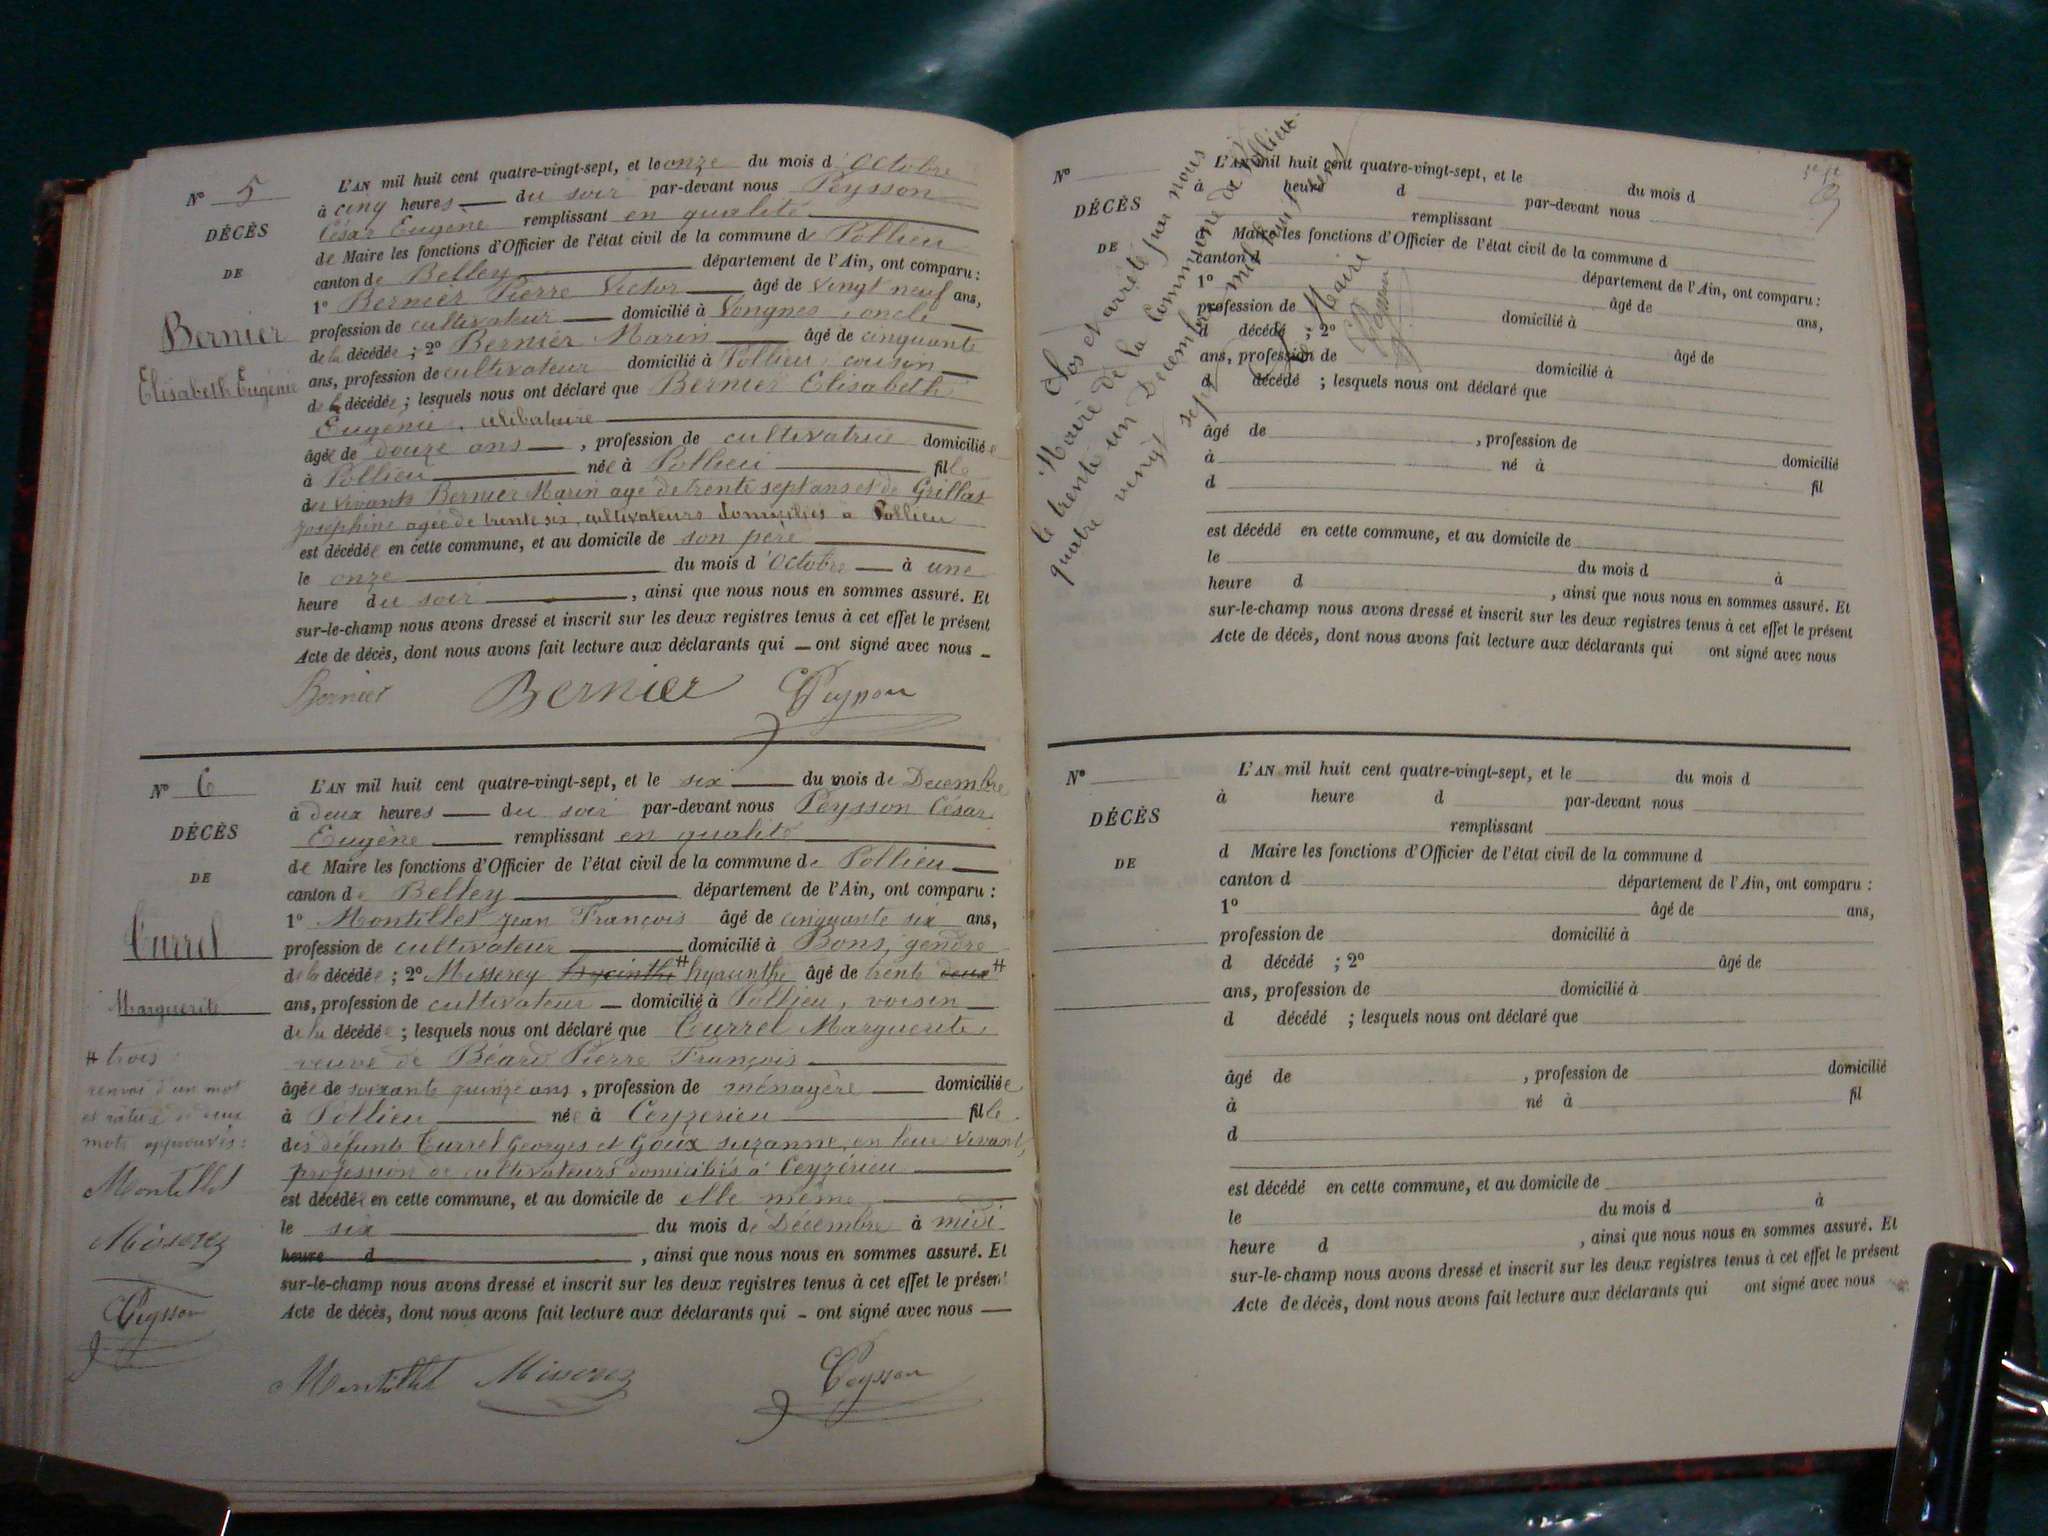 N° 5
DÉCÈS
DE
Bernier
Elisabeth Eugénie
L'AN mil huit cent quatre-vingt-sept, et le onze du mois d'Octobre
à cinq heures du soir par-devant nous Peysson
César Eugène remplissant en qualité
de Maire les fonctions d'Officier de l'état civil de la commune de Pollieu
canton de Belley département de l'Ain, ont comparu :
1° Bernier Pierre Victor âgé de vingt neuf ans,
profession de cultivateur domicilié à Vongnes, oncle
de la décédée ; 2° Bernier Marin âgé de cinquante
ans, profession de cultivateur domicilié à Pollieu, cousin
de la décédée ; lesquels nous ont déclaré que Bernier Elisabeth
Eugénie, célibataire
âgée de douze ans , profession de cultivatrice domiciliée
à Pollieu née à Pollieu fille
des vivants Bernier Marin agé de trente sept ans et de Grillat
Josephine agée de trente six, cultivateurs domiciliés a Pollieu
est décédée en cette commune, et au domicile de son père
le onze du mois d'Octobre à une
heure du soir , ainsi que nous nous en sommes assuré. Et
sur-le-champ nous avons dressé et inscrit sur les deux registres tenus à cet effet le présent
Acte de décès, dont nous avons fait lecture aux déclarants qui ont signé avec nous
Bernier Bernier Peysson
N° 6
DÉCÈS
DE
Currel
Marguerite
L'AN mil huit cent quatre-vingt-sept, et le six du mois de Décembre
à deux heures du soir par-devant nous Peysson César
Eugène remplissant en qualité
de Maire les fonctions d'Officier de l'état civil de la commune de Pollieu
canton de Belley département de l'Ain, ont comparu :
1° Montillet Jean François âgé de cinquante six ans,
profession de cultivateur domicilié à Bons, gendre
de la décédée ; 2° Misserey hyacinthe # hyacinthe âgé de trente deux #
ans, profession de cultivateur domicilié à Pollieu, voisin
de la décédée ; lesquels nous ont déclaré que Currel Marguerite,
veuve de Béard Pierre François
âgée de soixante quinze ans , profession de ménagère domiciliée
à Pollieu née à Ceyzerieu fille
des défunts Currel Georges et Goux suzanne, en leur vivant,
profession de cultivateurs domiciliés à Ceyzérieu
est décédée en cette commune, et au domicile de elle même
le six du mois de Décembre à midi
heure d , ainsi que nous nous en sommes assuré. Et
sur-le-champ nous avons dressé et inscrit sur les deux registres tenus à cet effet le présent
Acte de décès, dont nous avons fait lecture aux déclarants qui ont signé avec nous
# trois
renvoi d'un mot
et rature de deux
mots approuvés :
Montillet
Misserez
Peysson
Montillet Misserez Peysson
Clos et arrêté par nous
Maire de la Commune de Pollieu
le trente un Décembre mil huit cent
quatre vingt sept
Le Maire
Peysson
N°
DÉCÈS
DE
L'AN mil huit cent quatre-vingt-sept, et le du mois d
à heure d par-devant nous
remplissant
d Maire les fonctions d'Officier de l'état civil de la commune d
canton d département de l'Ain, ont comparu :
1° âgé de ans,
profession de domicilié à
d décédé ; 2° âgé de
ans, profession de domicilié à
d décédé ; lesquels nous ont déclaré que
âgé de , profession de domicilié
à né à fil
d
est décédé en cette commune, et au domicile de
le du mois d à
heure d , ainsi que nous nous en sommes assuré. Et
sur-le-champ nous avons dressé et inscrit sur les deux registres tenus à cet effet le présent
Acte de décès, dont nous avons fait lecture aux déclarants qui ont signé avec nous
N°
DÉCÈS
DE
L'AN mil huit cent quatre-vingt-sept, et le du mois d
à heure d par-devant nous
remplissant
d Maire les fonctions d'Officier de l'état civil de la commune d
canton d département de l'Ain, ont comparu :
1° âgé de ans,
profession de domicilié à
d décédé ; 2° âgé de
ans, profession de domicilié à
d décédé ; lesquels nous ont déclaré que
âgé de , profession de domicilié
à né à fil
d
est décédé en cette commune, et au domicile de
le du mois d à
heure d , ainsi que nous nous en sommes assuré. Et
sur-le-champ nous avons dressé et inscrit sur les deux registres tenus à cet effet le présent
Acte de décès, dont nous avons fait lecture aux déclarants qui ont signé avec nous